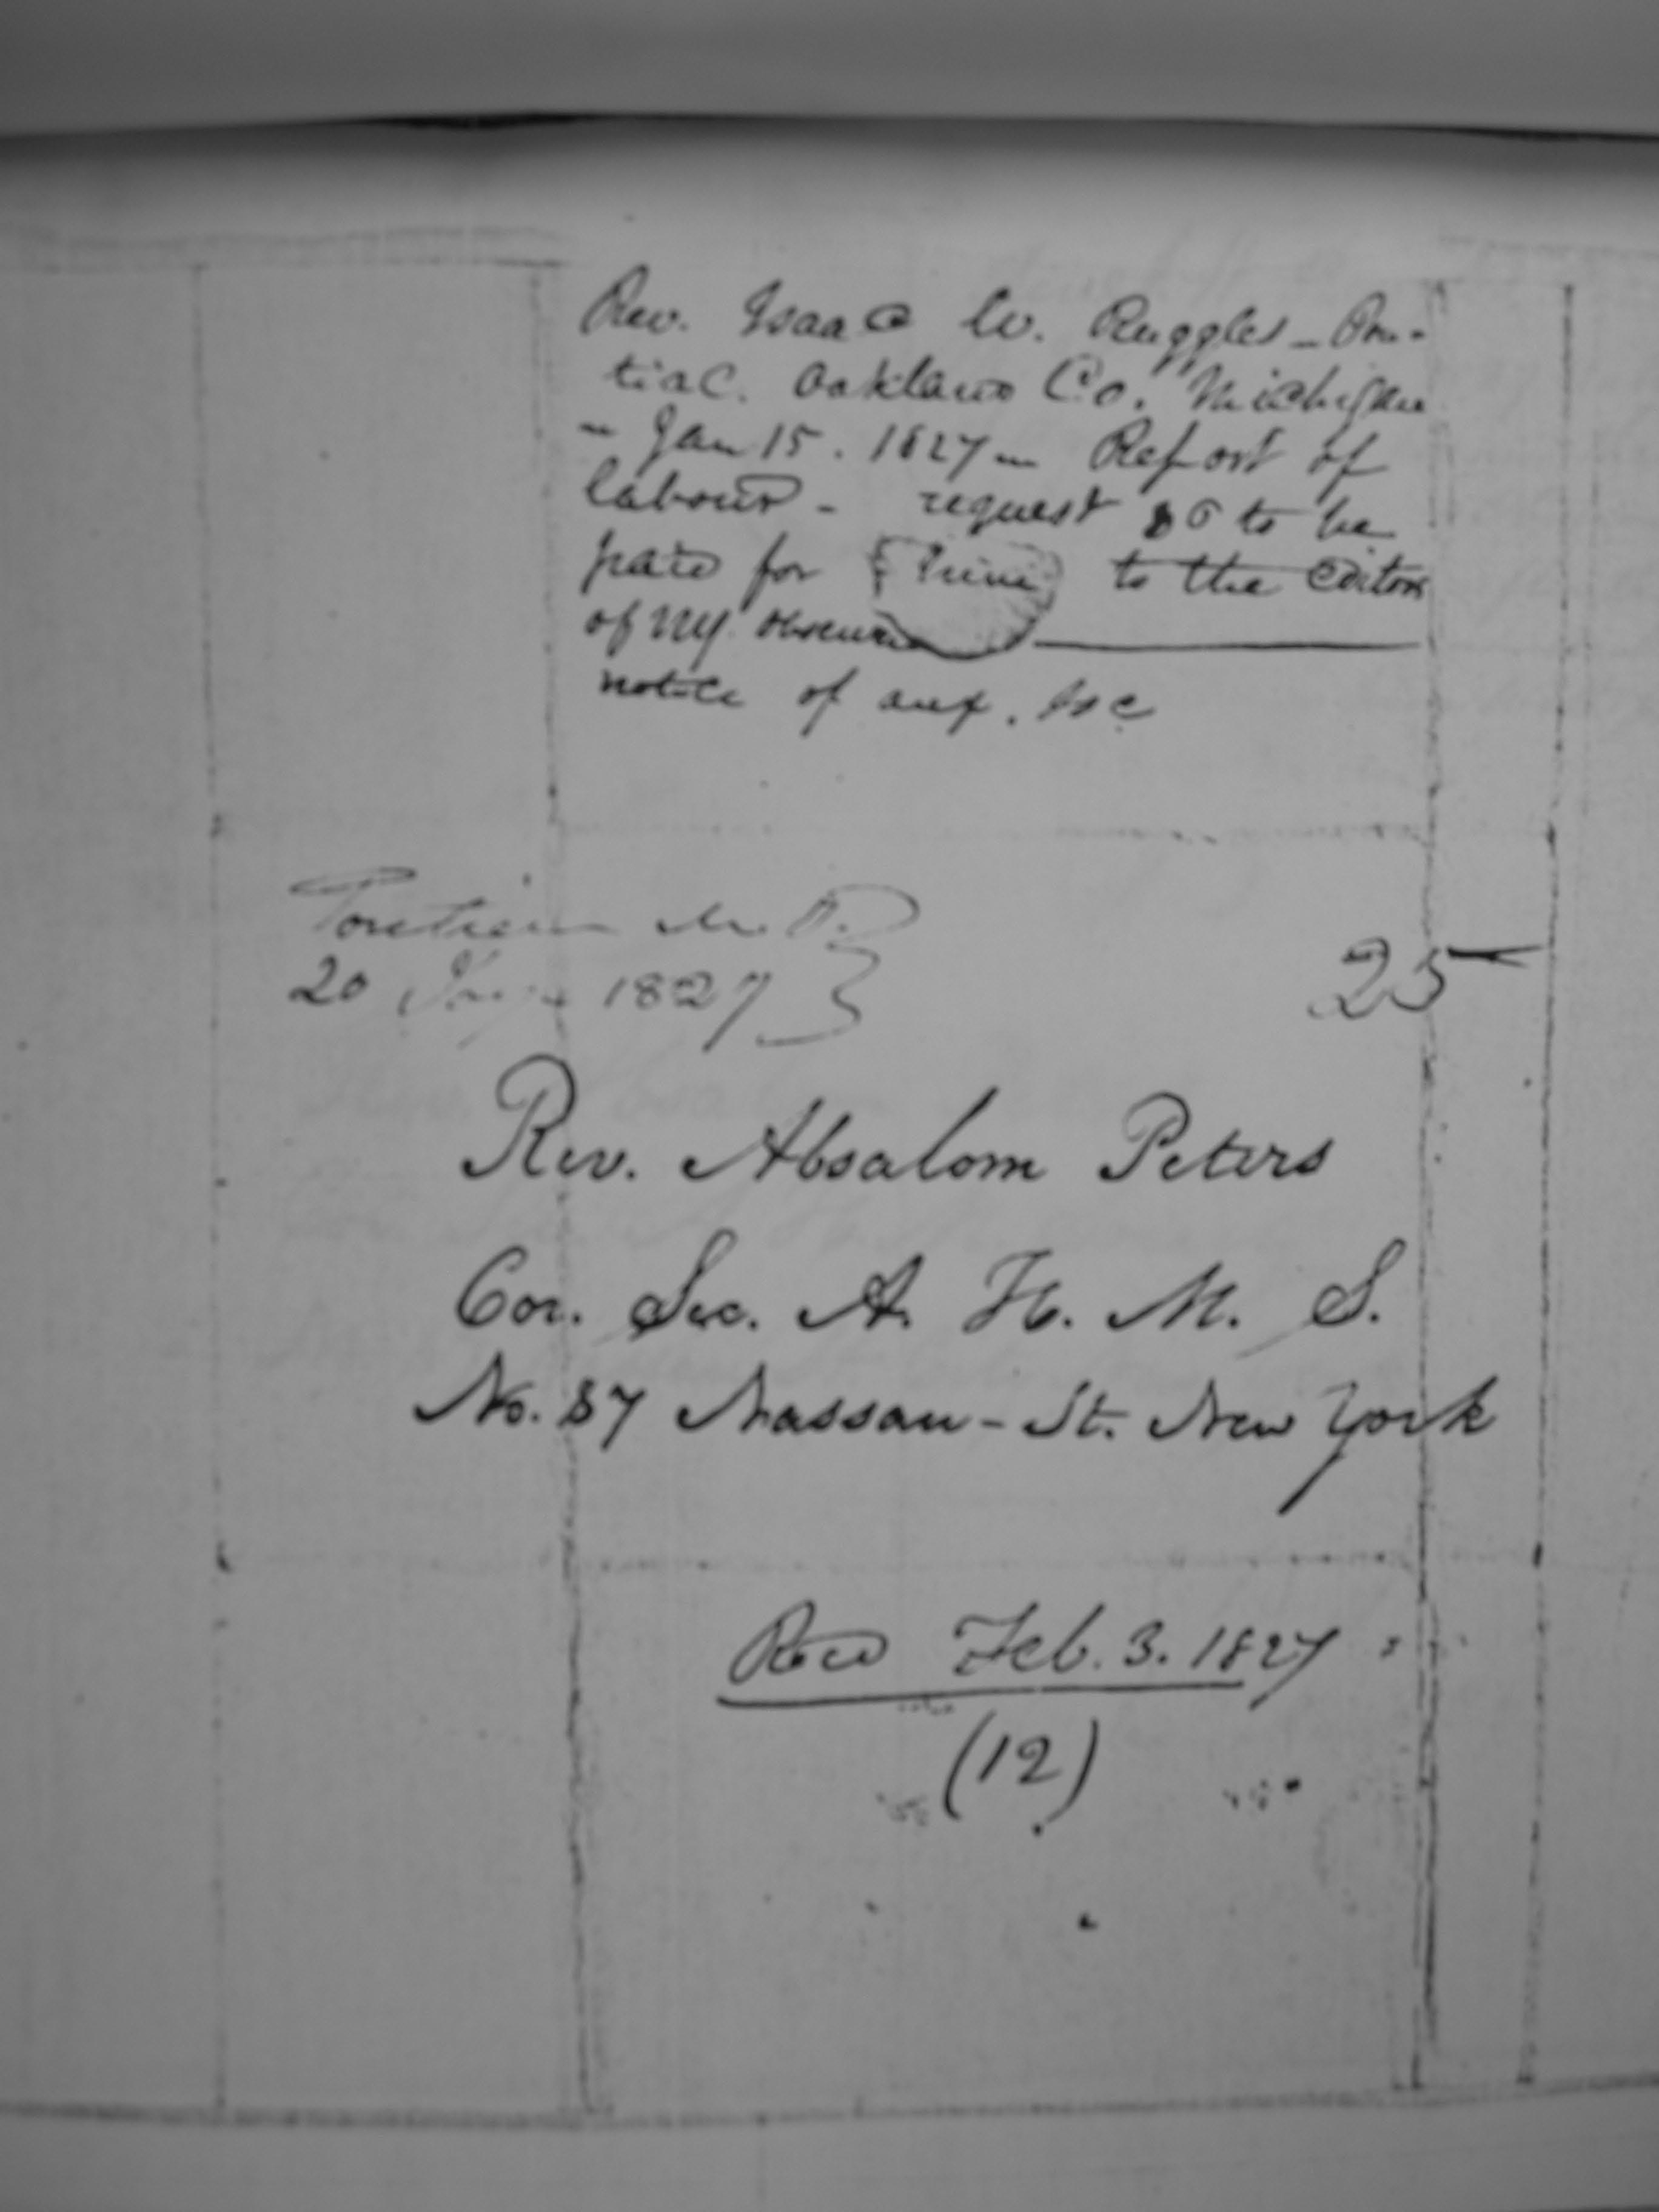 Rev. Isaac W. Ruggles - Pon-
tiac. Oakland Co. Michigan
- Jan 15. 1827 - Report of
labour - request to be
paid for to the Editors
of NY Observer
notice of aux. Soc
Pontiac M. T.
20 Jany 1827
25
Rev. Absalom Peters
Cor. Sec. A. H. M. S.
No. 87 Nassau-St. New York
Recd Feb. 3. 1827
(12)